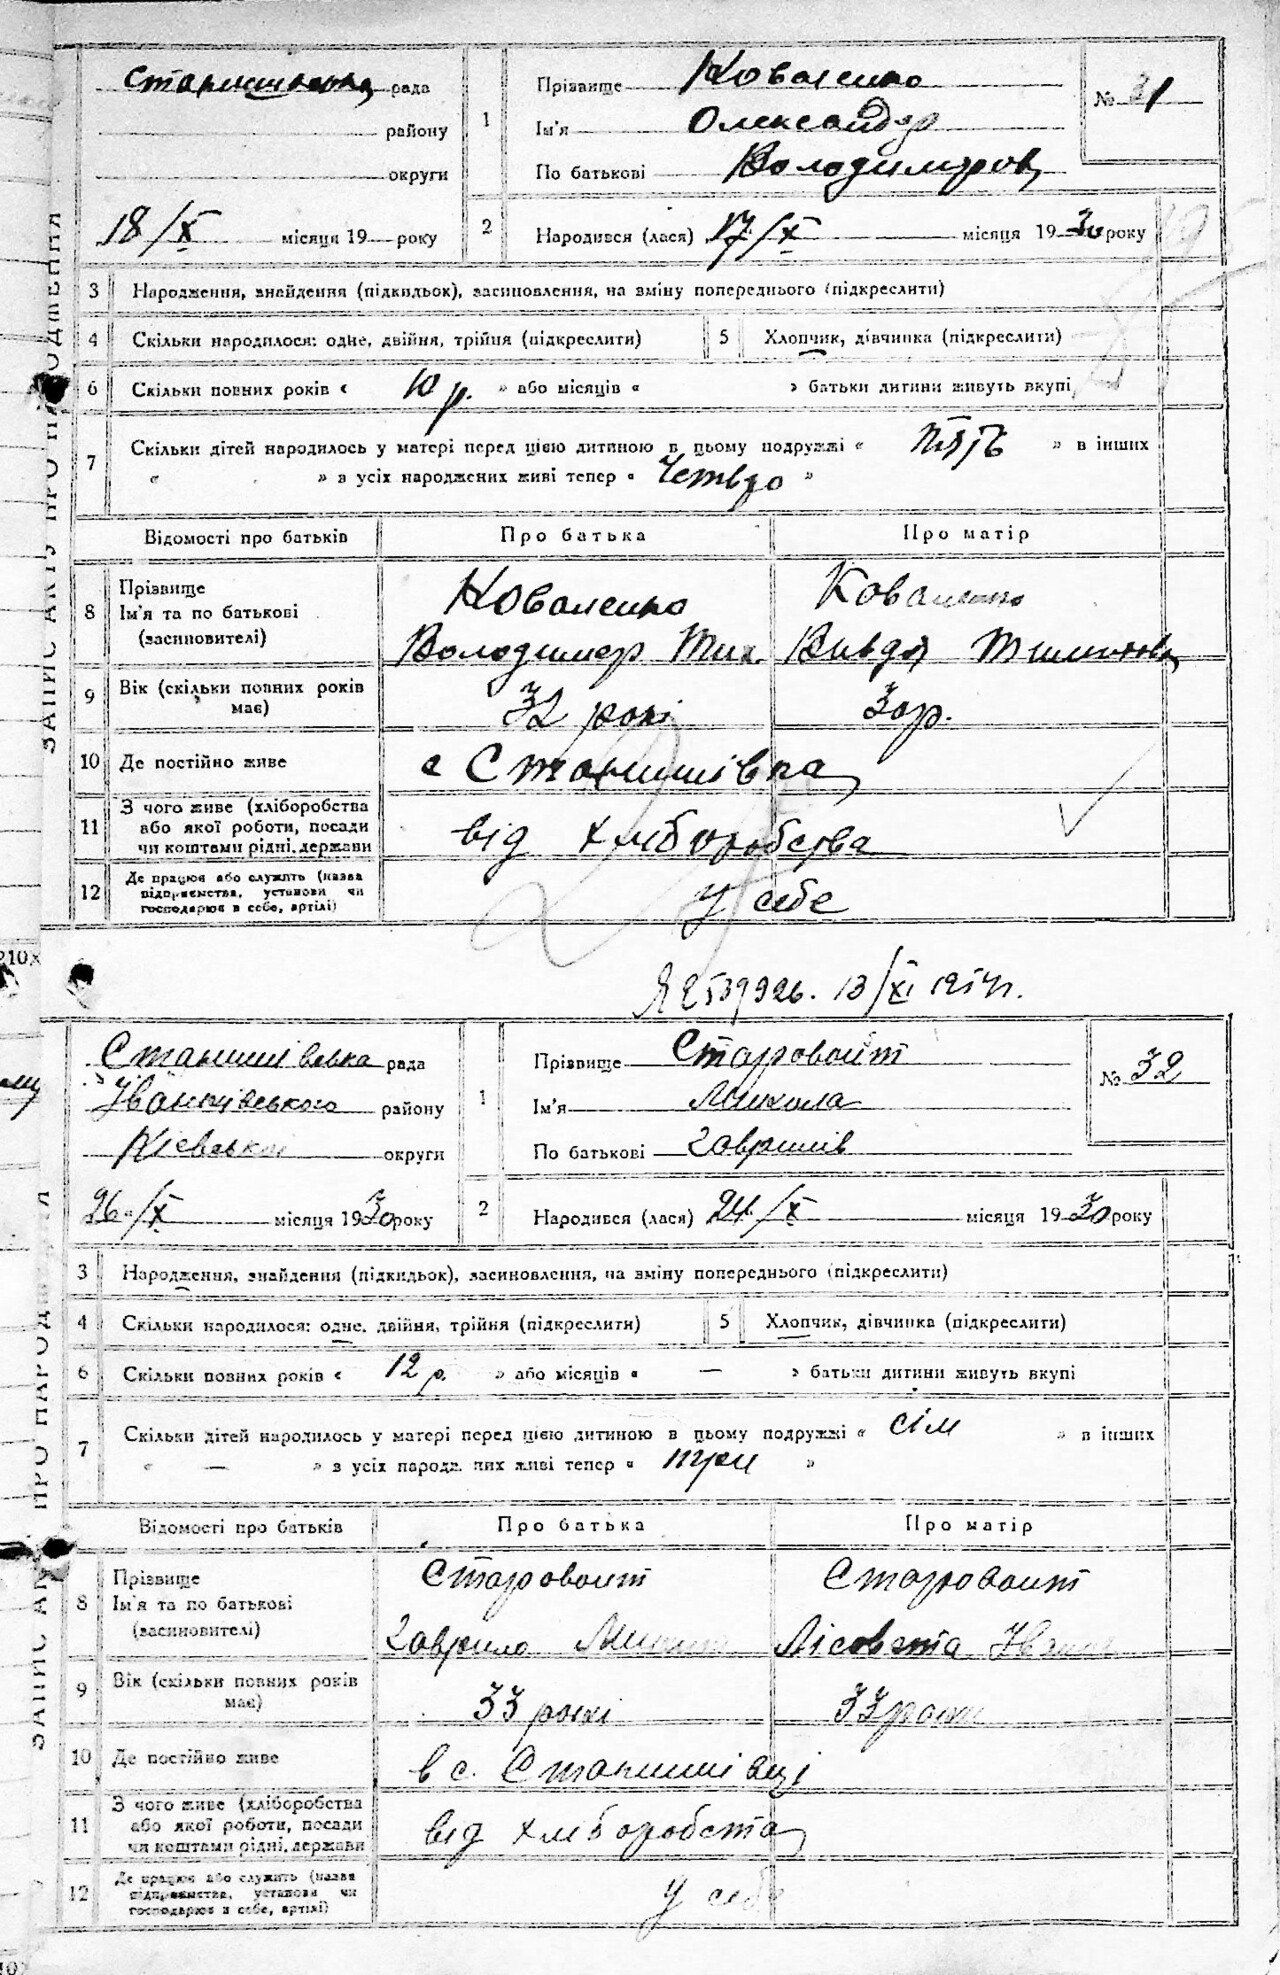 рада
району
округи
18/X місяця 19 року
1
Прізвище Коваленко
Ім'я Олександр
По батькові Володимиров
№
2
Народився (лася) 17/X місяця 1930 року
3 Народження, знайдення (підкидьок), засиновлення, на зміну попереднього (підкреслити)
4 Скільки народилося: одне, двійня, трійня (підкреслити) 5 Хлопчик, дівчинка (підкреслити)
6 Скільки повних років « 10 р. » або місяців « » батьки дитини живуть вкупі
7 Скільки дітей народилось у матері перед цією дитиною в цьому подружжі « пять » в інших
« » з усіх народжених живі тепер « Четвро »
Відомості про батьків Про батька Про матір
8 Прізвище Коваленко Коваленко
Ім'я та по батькові
(засиновителі) Володимер Тих.
9 Вік (скільки повних років має) 32 рокі 30 р.
10 Де постійно живе с Станишівка
11 З чого живе (хліборобства
або якої роботи, посади
чи коштами рідні, держави від хліборобства
12 Де працює або служить (назва
підприємства, установи чи
господарює в себе, артілі) у себе
ЗАПИС АКТУ ПРО НАРОДЖЕННЯ
13/XI 1954 г.
Станишівська рада
Іванківського району
округи
26/X місяця 1930 року
1
Прізвище Старовойт
Ім'я Микола
По батькові Гаврилів
№ 32
2
Народився (лася) 24/X місяця 1930 року
3 Народження, знайдення (підкидьок), засиновлення, на зміну попереднього (підкреслити)
4 Скільки народилося: одне, двійня, трійня (підкреслити) 5 Хлопчик, дівчинка (підкреслити)
6 Скільки повних років « 12 р. » або місяців « — » батьки дитини живуть вкупі
7 Скільки дітей народилось у матері перед цією дитиною в цьому подружжі « сім » в інших
« — » з усіх народжених живі тепер « три »
Відомості про батьків Про батька Про матір
8 Прізвище Старовойт Старовойт
Ім'я та по батькові
(засиновителі) Гаврило Лісовета
9 Вік (скільки повних років має) 33 рокі 33
10 Де постійно живе в с. Станишівці
11 З чого живе (хліборобства
або якої роботи, посади
чи коштами рідні, держави від хліборобста
12 Де працює або служить (назва
підприємства, установи чи
господарює в себе, артілі) у себе